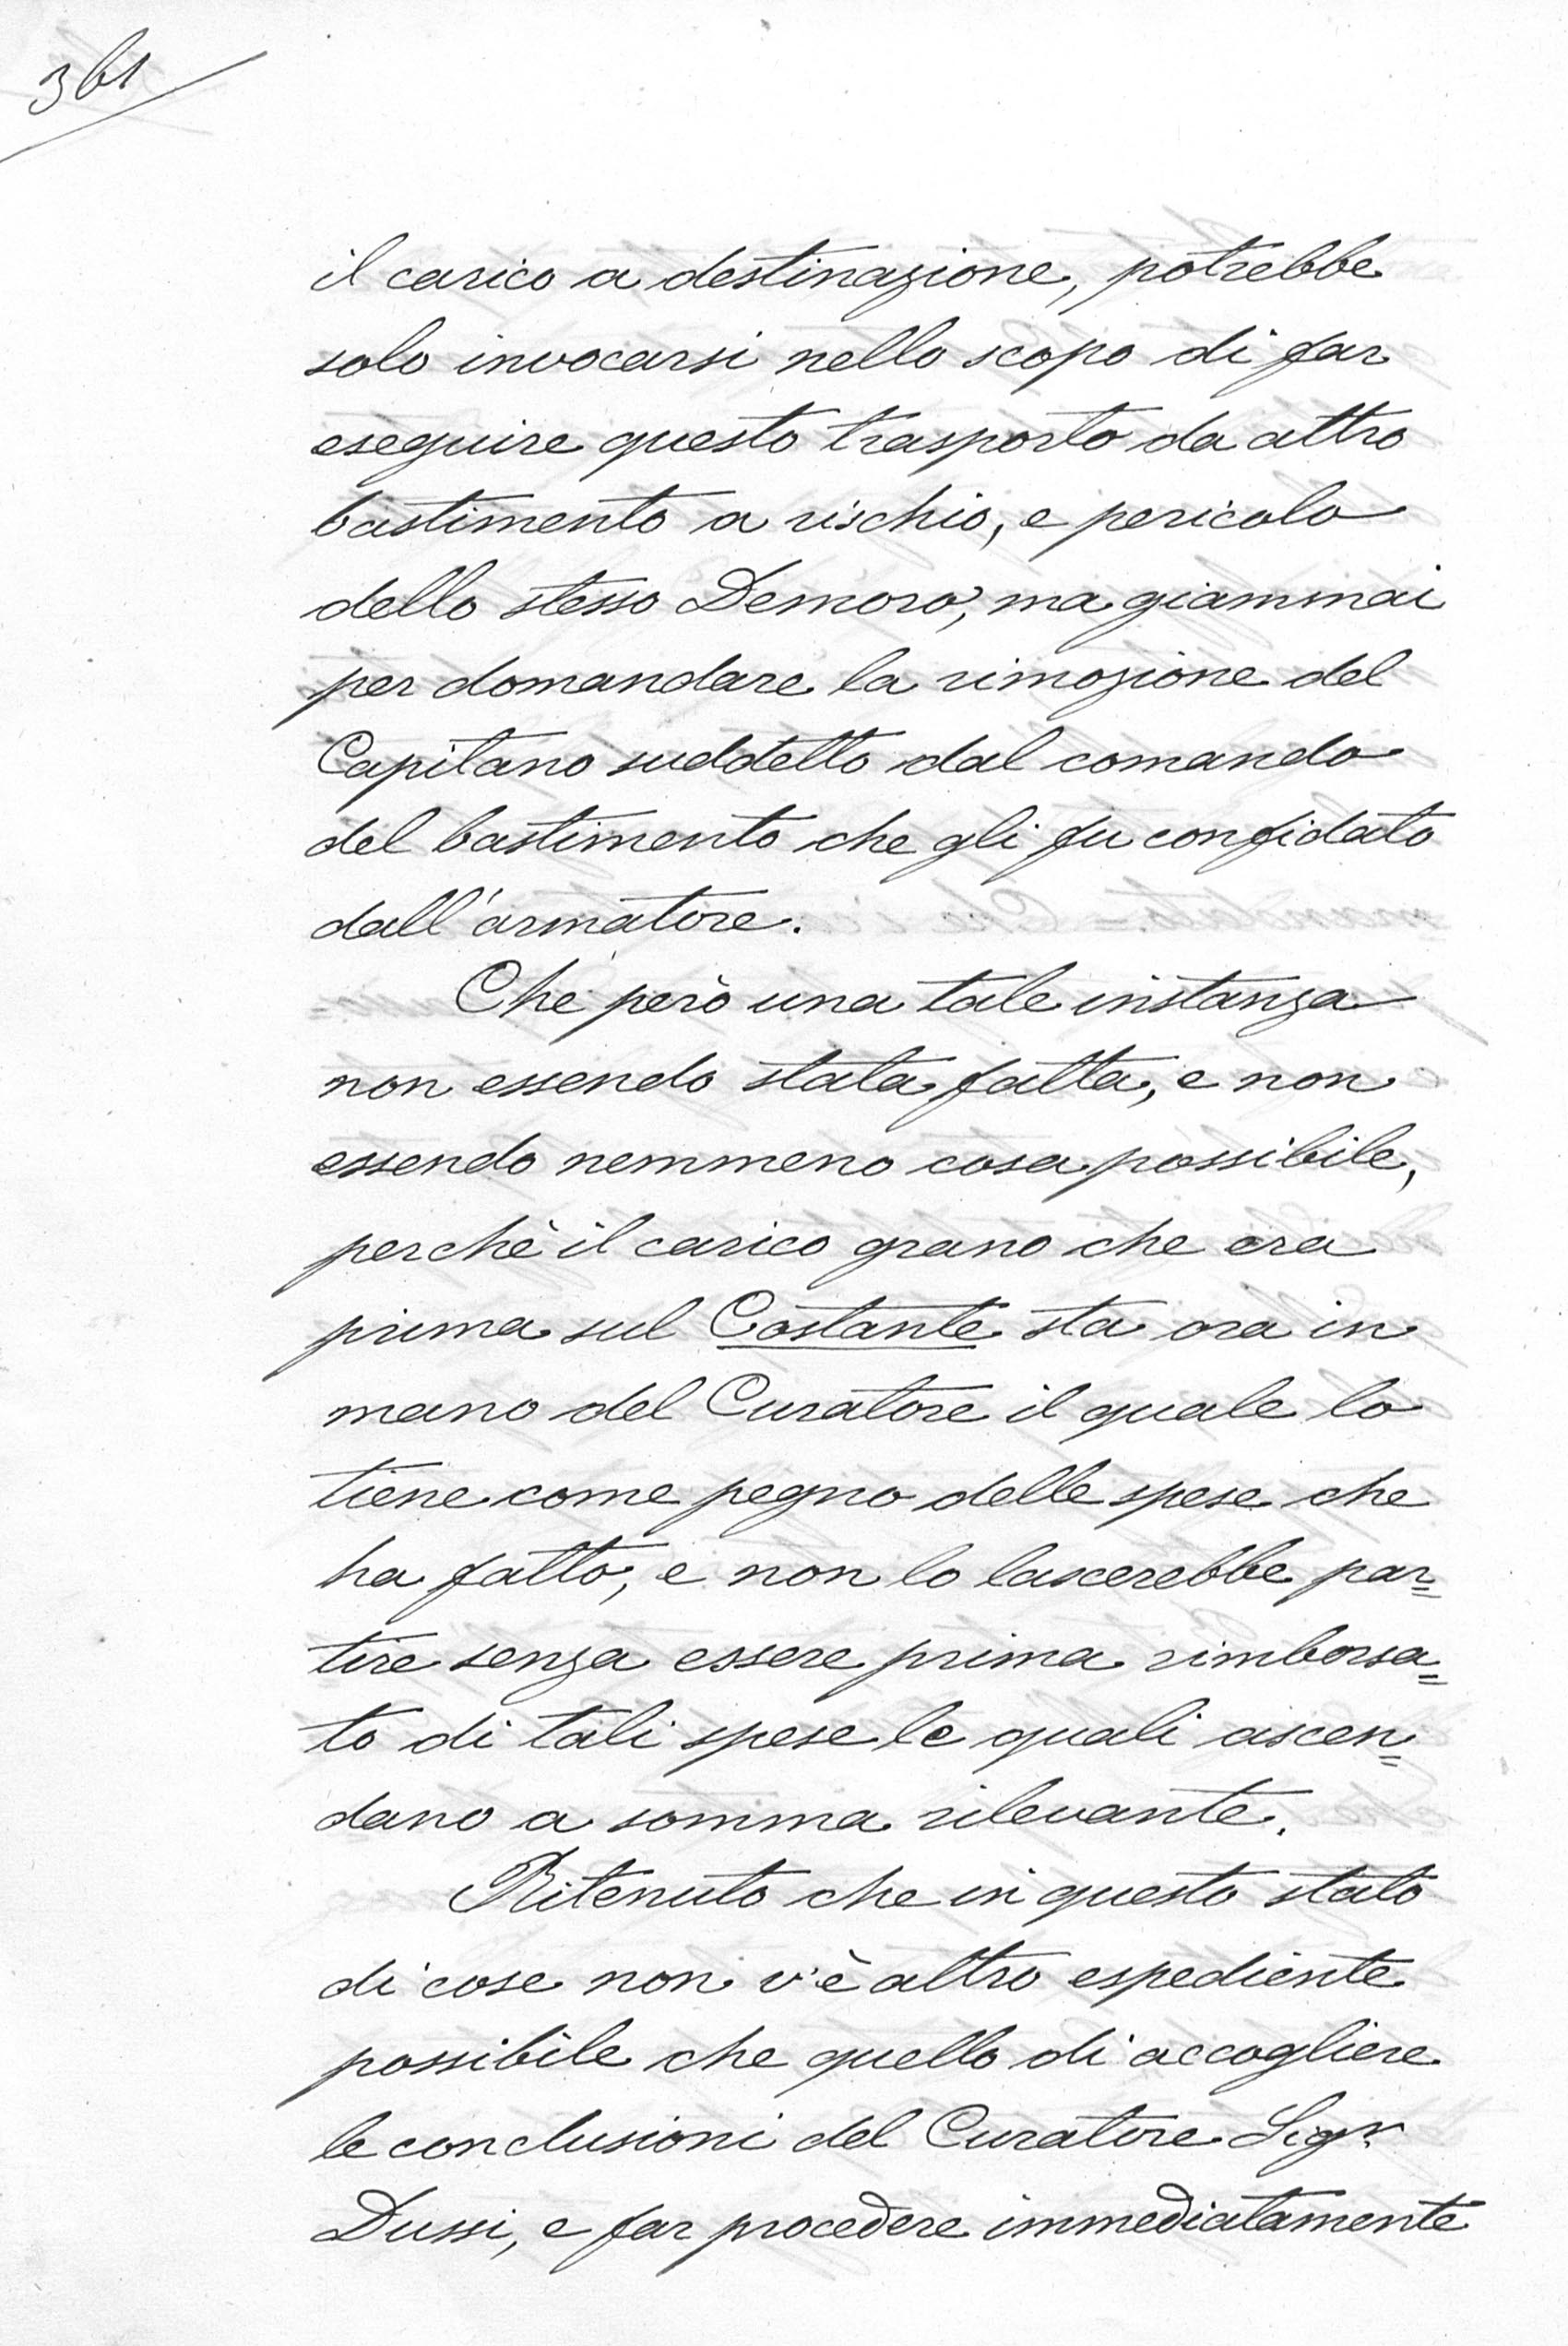 361
il carico a destinazione, potrebbe
solo invocarsi nello scopo di far
eseguire questo trasporto da altro
bastimento a rischio, e pericolo
dello stesso Demoro, ma giammai
per domandare la rimozione del
Capitano suddetto dal comando
del bastimento che gli fu confidato
dall'armatore.
Che però una tale instanza
non essendo stata fatta, e non
essendo nemmeno cosa possibile,
perchè il carico grano che era
prima sul Costante sta ora in
mano del Curatore il quale lo
tiene come pegno delle spese che
ha fatto, e non lo lascerebbe par=
tire senza essere prima rimborsa=
to di tali spese le quali ascen=
dano a somma rilevante.
Ritenuto che in questo stato
di cose non v'è altro espediente
possibile che quello di accogliere
le conclusioni del Curatore Sigr.
Dussi, e far procedere immediatamente